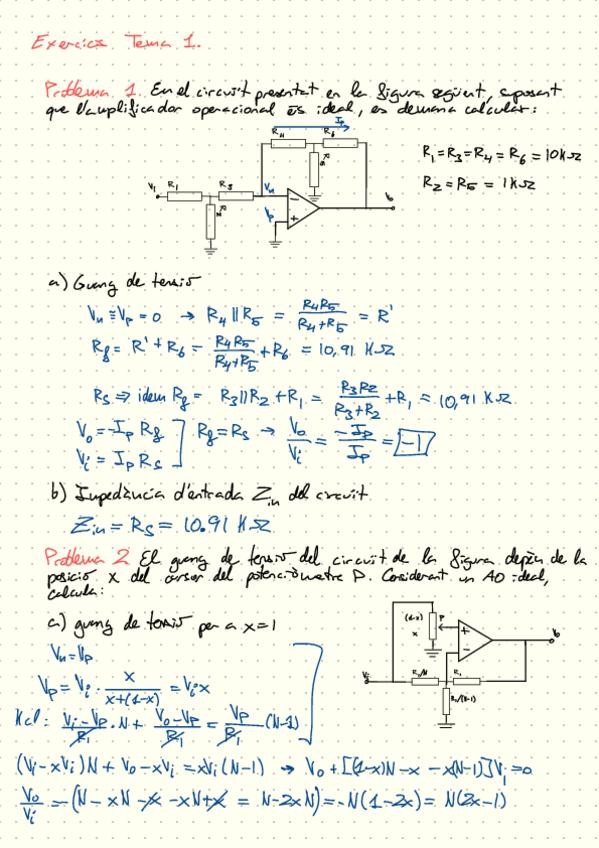 Exercicis Tema 1.
Problema 1. En el circuït presentat en la figura següent, suposant
que l'amplificador operacional és ideal, es demana calcular:
Ip
R4 R6
R5
R1=R3=R4=R6=10KΩ
R2=R5=1KΩ
Vi R1 R3 Vn
R2 Vp Vo
a) Guany de tensió
Vn≡Vp=0 → R4||R5 = R4R5/(R4+R5) = R'
Rf= R'+R6= R4R5/(R4+R5) +R6 = 10,91 KΩ
Rs ⇒ idem Rf= R3||R2+R1= R3R2/(R3+R2) +R1 = 10,91 KΩ
Vo=-Ip Rf
Vi=Ip Rs
Rf=Rs → Vo/Vi = -Ip/Ip = -1
b) Impedància d'entrada Zin del circuit
Zin=Rs=10.91 KΩ
Problema 2 El guany de tensió del circuït de la figura depèn de la
posició x del cursor del potenciòmetre P. Considerant un AO ideal,
calcula:
a) guany de tensió per a x=1
(1-x) P
x
Vo
Vi R1/N R1
R1/(N-1)
Vn=Vp
Vp=Vi·x/(x+(1-x)) =Vi·x
Kcl: (Vi-Vp)/R1·N+(Vo-Vp)/R1=Vp/R1 (N-1)
(Vi-xVi)N+Vo-xVi=xVi(N-1) → Vo+[(1-x)N-x-x(N-1)]Vi=0
Vo/Vi=-(N-xN-x-xN+x = N-2xN)=-N(1-2x)= N(2x-1)